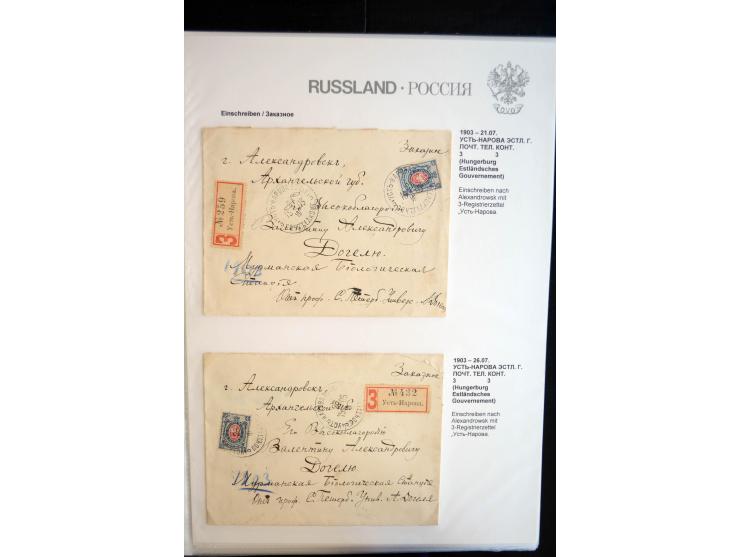 RUSSLAND · РОССИЯ
Einschreiben / Заказное
1903 – 21.07.
УСТЬ-НАРОВА ЭСТЛ. Г.
ПОЧТ. ТЕЛ. КОНТ.
3 3
(Hungerburg
Estländsches
Gouvernement)
Einschreiben nach
Alexandrowsk mit
3-Registrierzettel
„Усть-Нарова.
Заказн
г. Александровскъ,
Архангельской губ.
Его Высокоблагородію
Валентину Александровичу
Догелю
Мурманская Біологическая
Станція
Отъ проф. С. Петерб. Универ.
З
№ 259
Усть-Нарова.
1903 – 26.07.
УСТЬ-НАРОВА ЭСТЛ. Г.
ПОЧТ. ТЕЛ. КОНТ.
3 3
(Hungerburg
Estländsches
Gouvernement)
Einschreiben nach
Alexandrowsk mit
3-Registrierzettel
„Усть-Нарова.
Заказное
г. Александровскъ,
Архангельской губ.
З
№ 432
Усть-Нарова.
Его Высокоблагородію
Валентину Александровичу
Догелю
Мурманская Біологическая Станція
Отъ проф. С. Петерб. Унив. А. Догеля